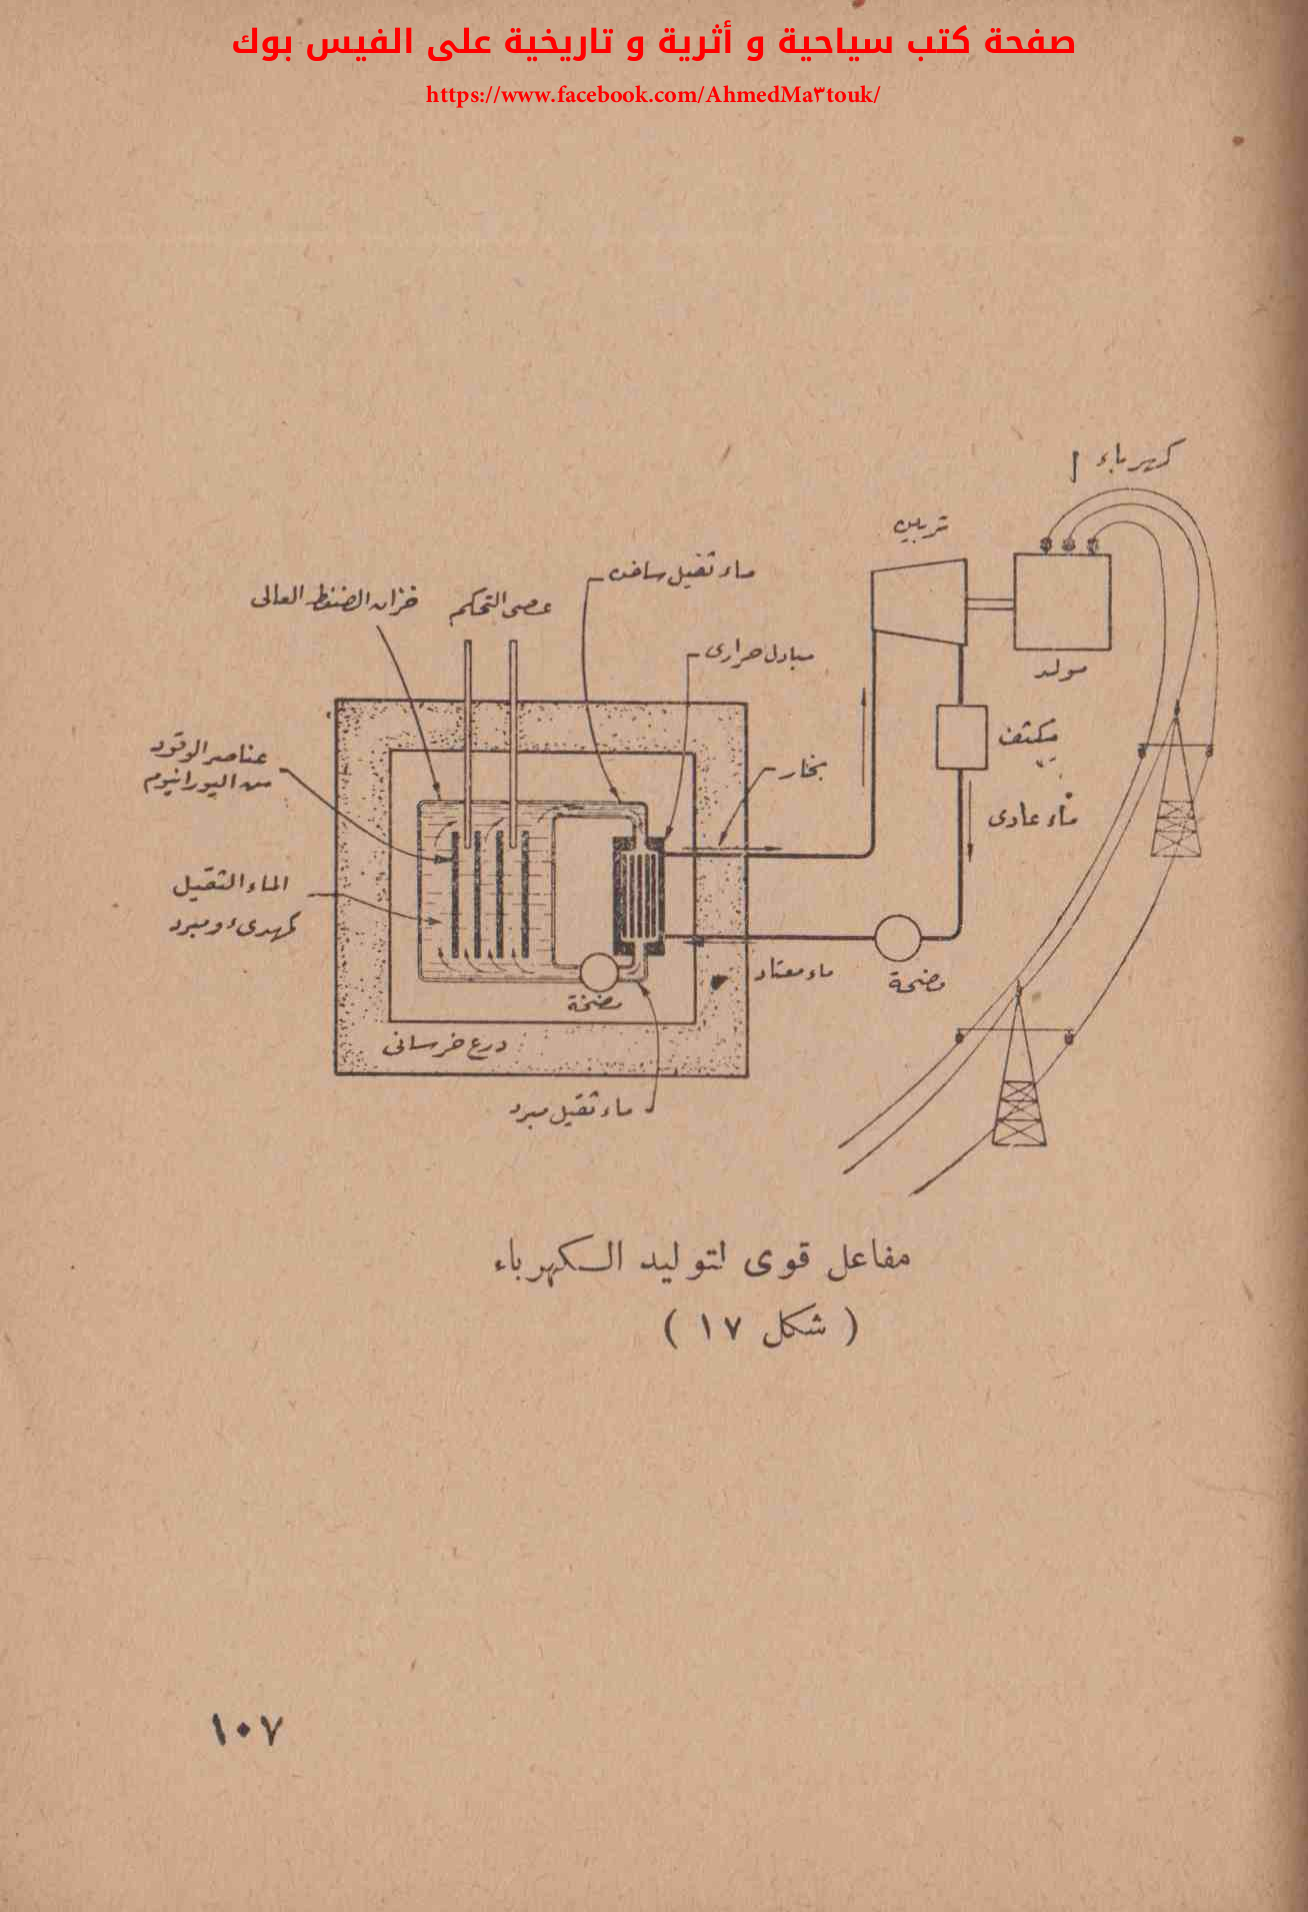 صفحة كتب سياحية و أثرية و تاريخية على الفيس بوك
https://www.facebook.com/AhmedMa٣touk/
كهرباء
تربين
مولد
ماء ثقيل ساخن
عصى التحكم
خزان الضغط العالى
مبادل حرارى
مكثف
بخار
عناصر الوقود
من اليورانيوم
ماء عادى
الماء الثقيل
كمهدىء ومبرد
ماء معتاد
مضخة
مضخة
درع خرسانى
ماء ثقيل مبرد
مفاعل قوى لتوليد الكهرباء
( شكل ١٧ )
١٠٧